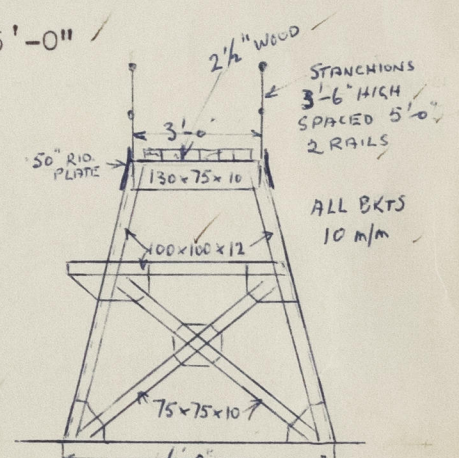 5'-0"
2½" WOOD
STANCHIONS
3'-6" HIGH
SPACED 5'-0"
2 RAILS
3'-0"
PLATE
130x75x10
ALL BKTS
10 m/m
100x100x12
75x75x10